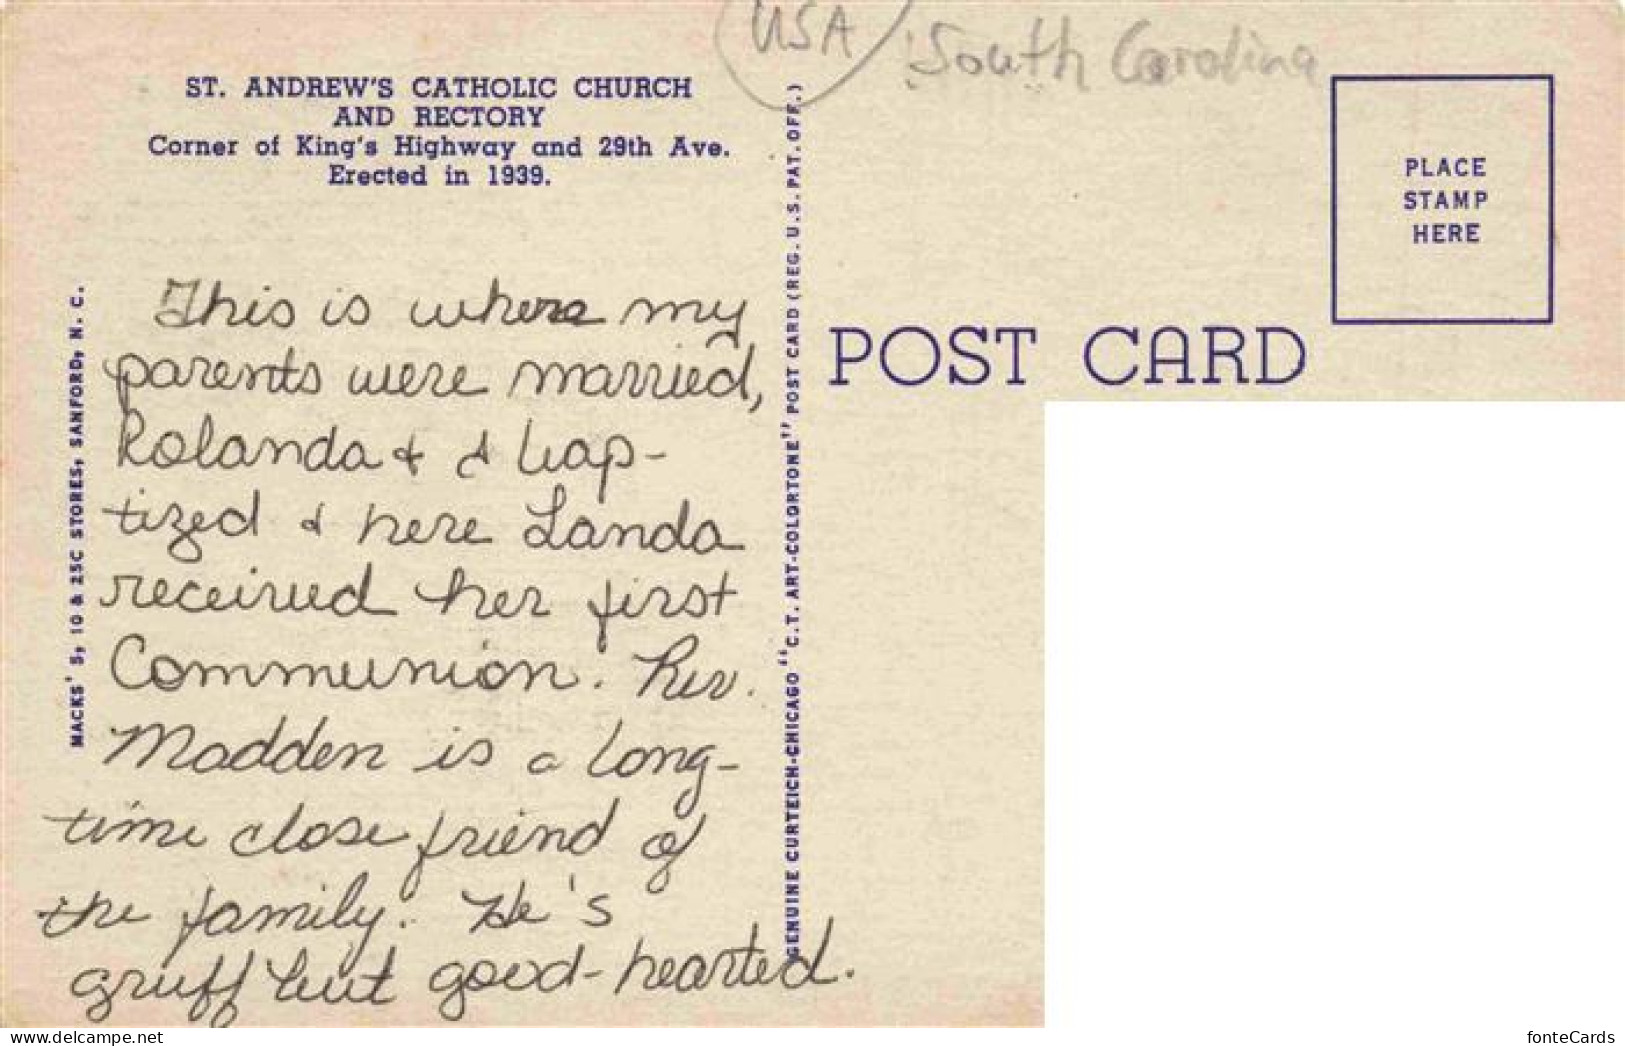 USA South Carolina
ST. ANDREW'S CATHOLIC CHURCH
AND RECTORY
Corner of King's Highway and 29th Ave.
Erected in 1939.
This is where my
parents were married,
Rolanda & I bap-
tized & here Landa
received her first
Communion. Rev.
Madden is a long-
time close friend of
the family. He's
gruff but good-hearted.
MACKS' 5, 10 & 25C STORES, SANFORD, N. C.
GENUINE CURTEICH-CHICAGO "C.T. ART-COLORTONE" POST CARD (REG. U.S. PAT. OFF.)
POST CARD
PLACE
STAMP
HERE
delcampe.net
fonteCards